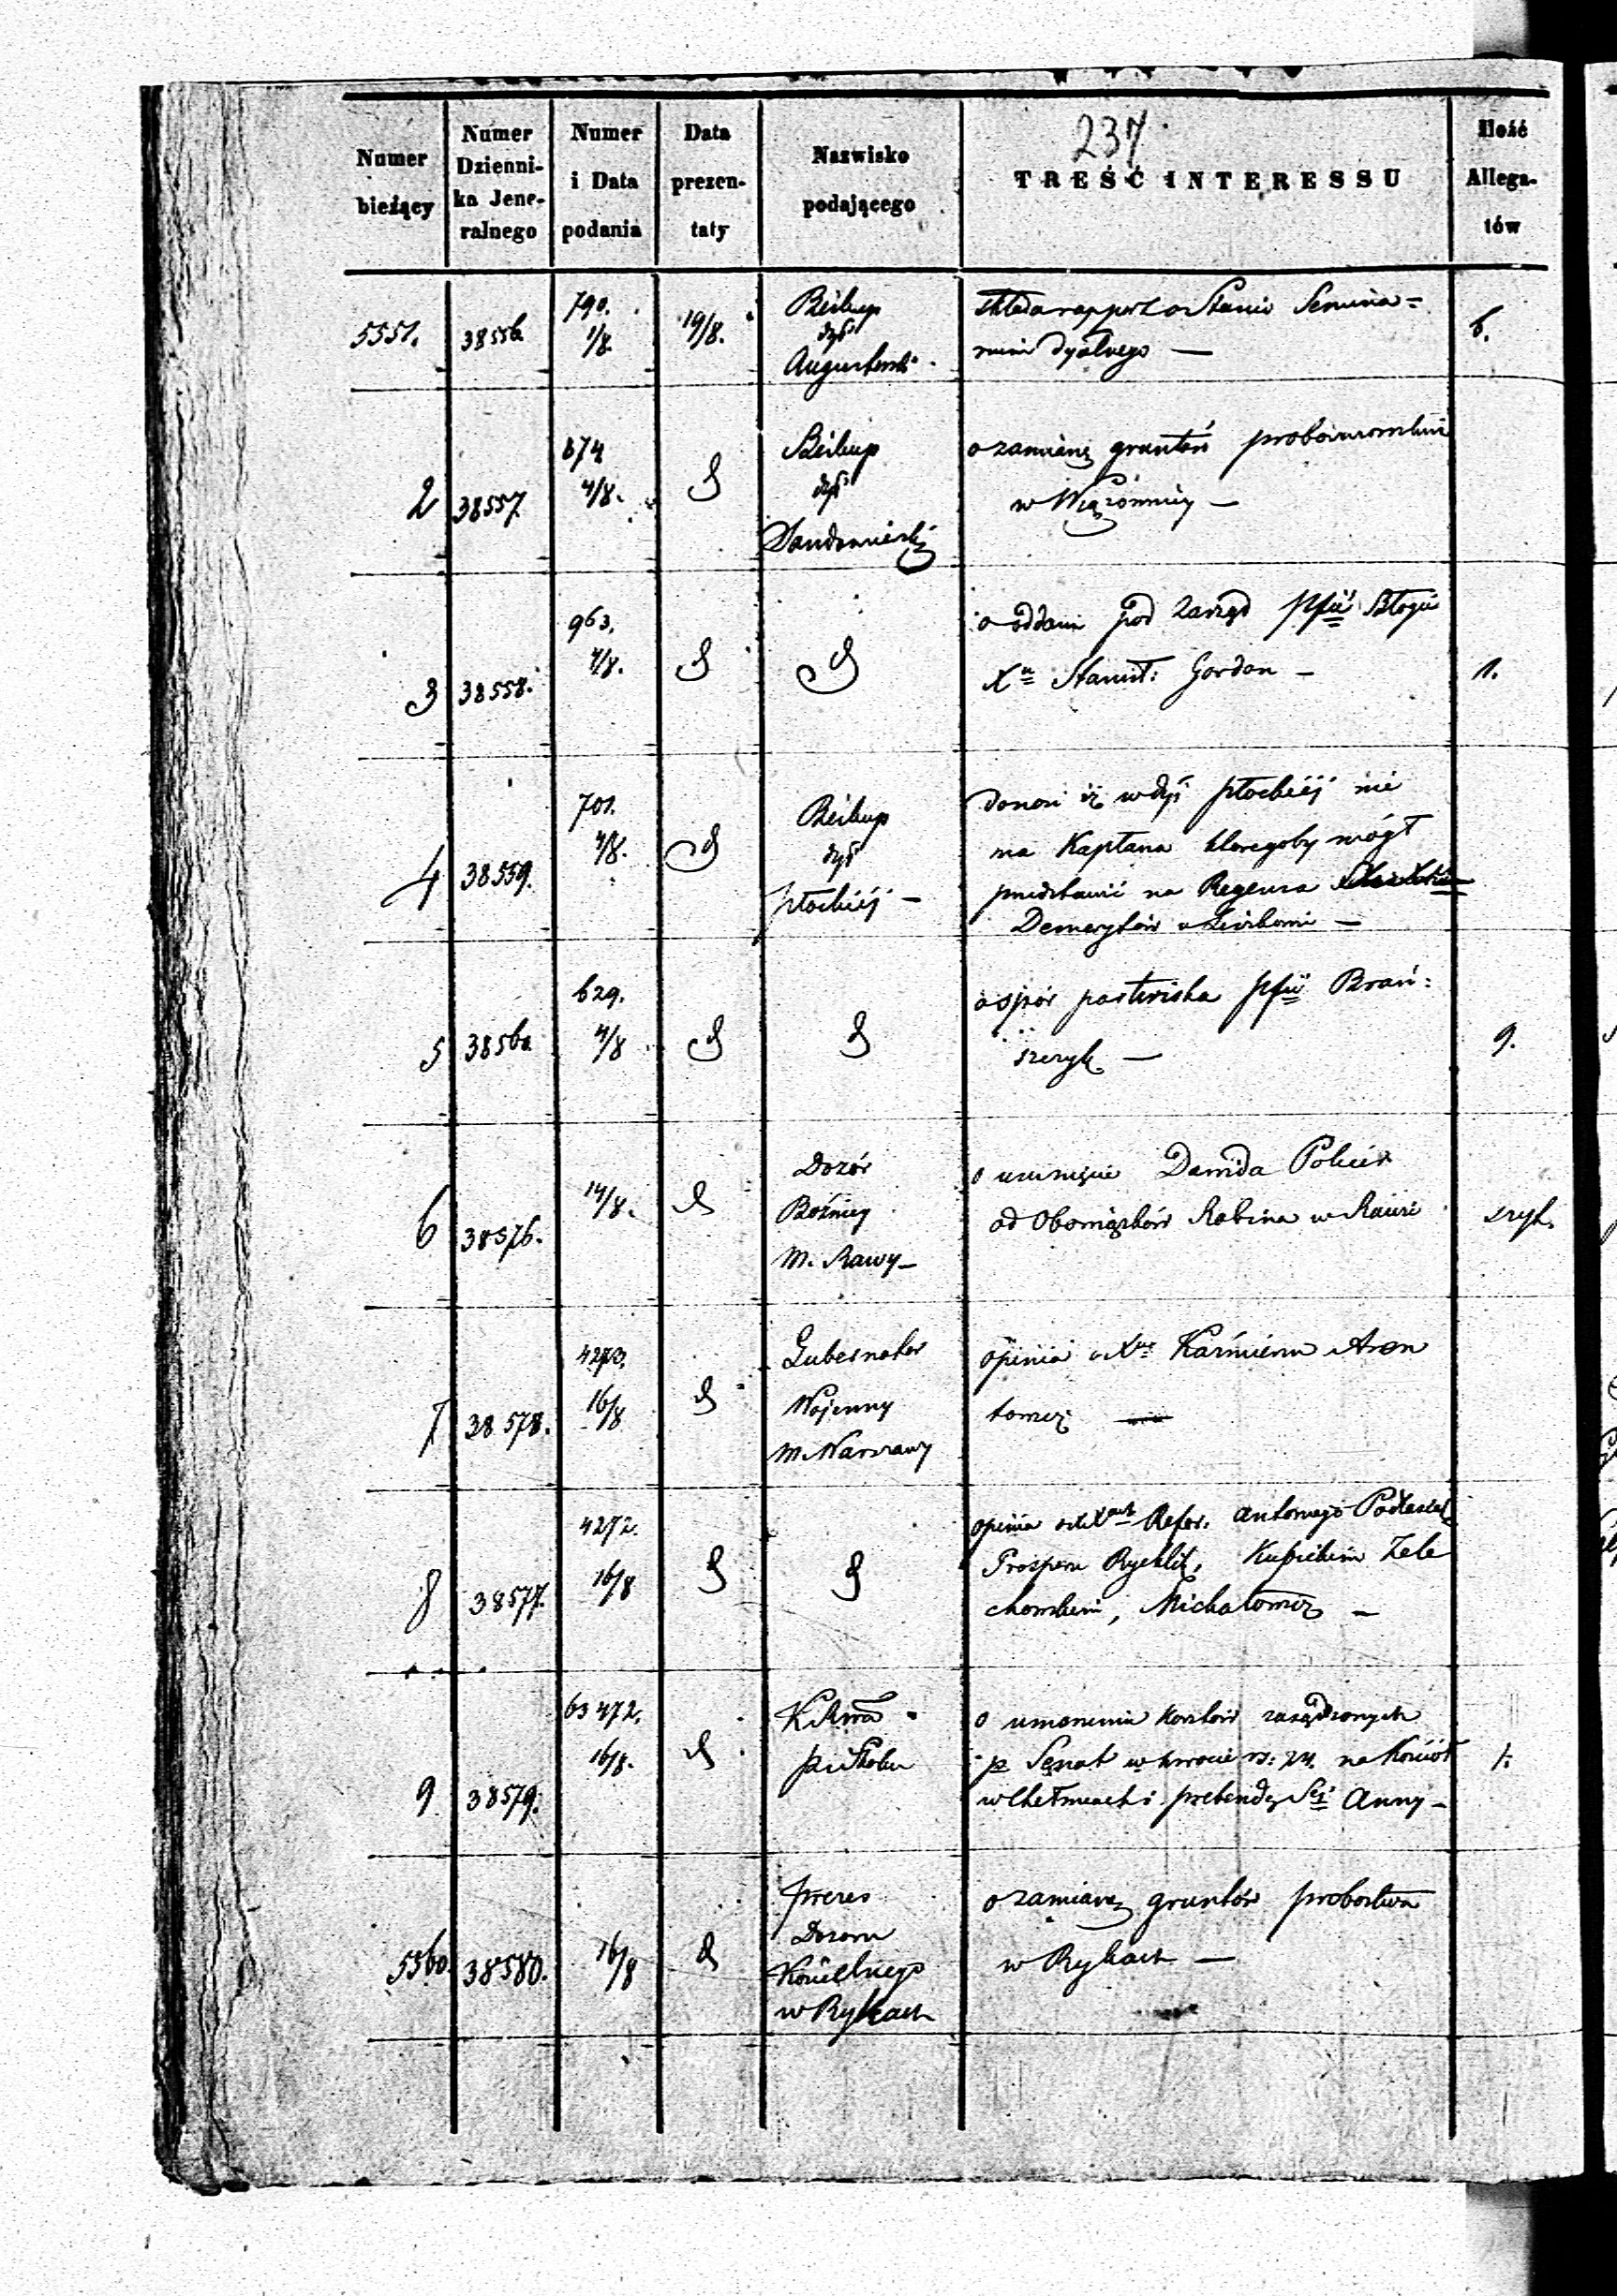 237
Numer bieżący
Numer Dzienni- ka Jene- ralnego
Numer i Data podania
Data prezen- taty
Nazwisko podającego
TREŚĆ INTERESSU
Ilość Allega- tów
5551. 38556 790. 1/8. 19/8. Biskup dyś Augustowski
składa rapport o Stanie Semina=
rium dyalnego — 6.
2 38557. 674 4/8. Biskup dyś Sandomirskiej
o zamianę gruntów probowowskich
w Wiązównicy —
3 38558. 963. 4/8.
o oddani pod Zarząd Pfii Błogie
Xu Stanisł: Gordon — 1.
4 38559. 701. 4/8. Biskup dyś płockiéj —
donosi iż w dyś płockiéj nie
ma Kapłana któregoby mógł
przedstawić na Regensa
Demerytów —
5 38560 629. 4/8
o spór pastwiska pfii Brań:
szczyk — 9.
6 38576. 14/8. Dozór Bóźnicy M. Rawy —
o usunięcie Dawida
od Obowiązków Rabina w Rawie szyt.
7 38578. 4273. 16/8 Gubernator Wojenny M. Warszawy
opinia o Xu Kaźmierzu Aron
towicz —
8 38577. 4272. 16/8
opinia o Xach Refor. Antonego
Prosper Rychlik, Kubickim Żele
chowskim, Michałowicz —
9 38579. 63472. 16/8.
o umorzenie kosztów zasądzonych
p Senat w kwocie rs: 24. na Kościół
w Chełmcach i prebendę Sej Anny — 1.
5560. 38580. 16/8 Prezes Dozoru Kościelnego w Rykach
o zamianę gruntów probostwa
w Rykach —